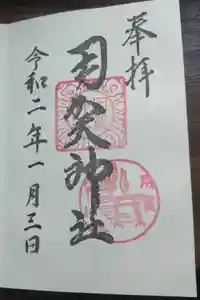 奉拝
用賀神社
令和二年一月三日